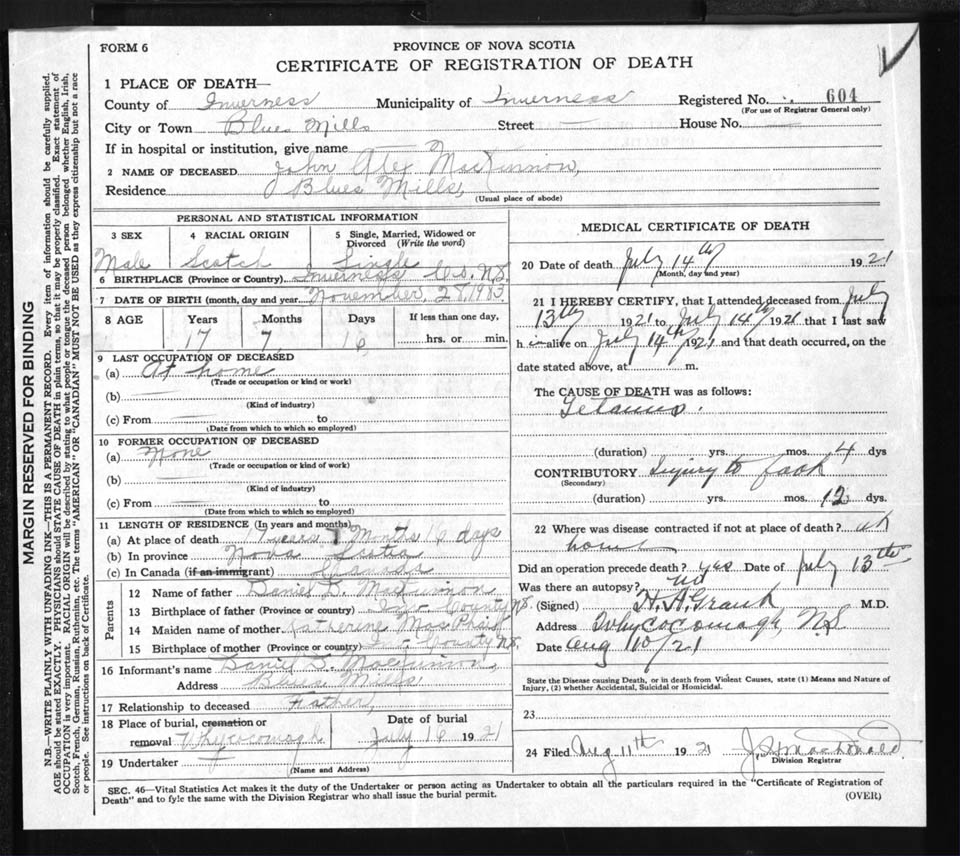 FORM 6
PROVINCE OF NOVA SCOTIA
CERTIFICATE OF REGISTRATION OF DEATH
1 PLACE OF DEATH—
County of Inverness Municipality of Inverness Registered No. 604
(For use of Registrar General only)
City or Town Blues Mills Street — House No.
If in hospital or institution, give name —
2 NAME OF DECEASED John Alex MacKinnon,
Residence Blues Mills,
(Usual place of abode)
PERSONAL AND STATISTICAL INFORMATION
3 SEX 4 RACIAL ORIGIN 5 Single, Married, Widowed or Divorced (Write the word)
Male Scotch Single
6 BIRTHPLACE (Province or Country) Inverness Co. N.S.
7 DATE OF BIRTH (month, day and year November, 28, 1903
8 AGE Years Months Days If less than one day,
17 7 16 hrs. or min.
9 LAST OCCUPATION OF DECEASED
(a) At home
(Trade or occupation or kind or work)
(b)
(Kind of industry)
(c) From to
(Date from which to which so employed)
10 FORMER OCCUPATION OF DECEASED
(a) None
(Trade or occupation or kind of work)
(b)
(Kind of industry)
(c) From to
(Date from which to which so employed)
11 LENGTH OF RESIDENCE (In years and months)
(a) At place of death 17 years 7 Months 16 days
(b) In province Nova Scotia
(c) In Canada (if an immigrant) Canada
Parents
12 Name of father Daniel D. MacKinnon
13 Birthplace of father (Province or country) Inv. County N.S.
14 Maiden name of mother Catherine MacPhail
15 Birthplace of mother (Province or country) County N.S.
16 Informant's name Daniel D. MacKinnon,
Address Blues Mills
17 Relationship to deceased Father,
18 Place of burial, cremation or removal Whycocomagh Date of burial July 16 1921
19 Undertaker
(Name and Address)
MEDICAL CERTIFICATE OF DEATH
20 Date of death July 14th 1921
(Month, day and year)
21 I HEREBY CERTIFY, that I attended deceased from July
13th 1921 to July 14th 1921 that I last saw
h im alive on July 14th 1921 and that death occurred, on the
date stated above, at m.
The CAUSE OF DEATH was as follows:
Tetanus.
(duration) yrs. mos. 4 dys
CONTRIBUTORY Injury to foot
(Secondary)
(duration) yrs. mos. 12 dys.
22 Where was disease contracted if not at place of death? at
home
Did an operation precede death? yes Date of July 13th
Was there an autopsy? no
(Signed) H. A. Grant M.D.
Address Whycocomagh, N.S
Date Aug 10/21
State the Disease causing Death, or in death from Violent Causes, state (1) Means and Nature of
Injury, (2) whether Accidental, Suicidal or Homicidal.
23
24 Filed Aug. 11th 1921 MacDonald
Division Registrar
SEC. 46—Vital Statistics Act makes it the duty of the Undertaker or person acting as Undertaker to obtain all the particulars required in the "Certificate of Registration of
Death" and to fyle the same with the Division Registrar who shall issue the burial permit.
(OVER)
MARGIN RESERVED FOR BINDING
N.B.—WRITE PLAINLY WITH UNFADING INK—THIS IS A PERMANENT RECORD. Every item of information should be carefully supplied.
AGE should be stated EXACTLY. PHYSICIANS should STATE CAUSE OF DEATH in plain terms, so that it may be properly classified. Exact statement of
OCCUPATION is very important. RACIAL ORIGIN will be described by stating to what people or tongue the deceased person belonged whether English, Irish,
Scotch, French, German, Russian, Ruthenian, etc. The terms "AMERICAN" OR "CANADIAN" MUST NOT BE USED as they express citizenship but not a race
or people. See instructions on back of Certificate.